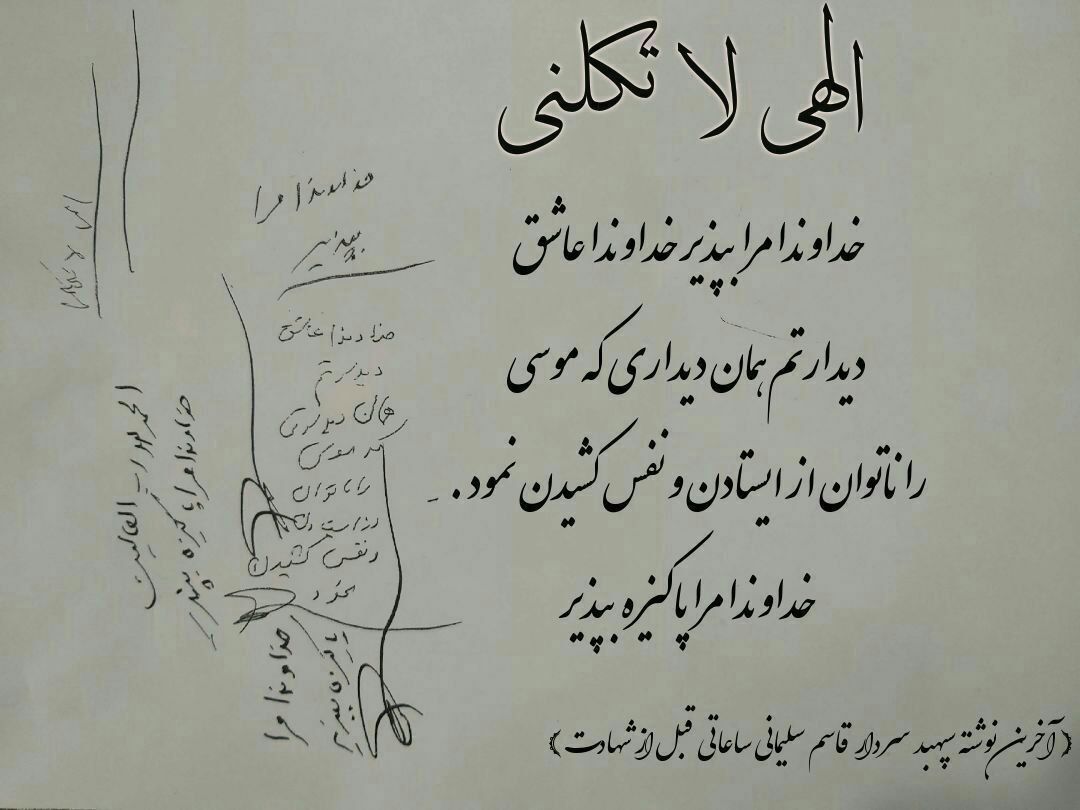 الهی لا تکلنی
خداوندا مرا بپذیر خداوندا عاشق
دیدارتم همان دیداری که موسی
را ناتوان از ایستادن و نفس کشیدن نمود.
خداوندا مرا پاکیزه بپذیر
﴿آخرین نوشته سپهبد سردار قاسم سلیمانی ساعاتی قبل از شهادت﴾
خداوندا مرا
بپذیر
خداوندا عاشق
دیدارتم
همان دیداری
که موسی
را ناتوان
از ایستادن
و نفس کشیدن
نمود
خداوندا مرا
پاکیزه بپذیر
خداوندا مرا پاکیزه بپذیر
الحمدلله رب العالمین
الهی لا تکلنی